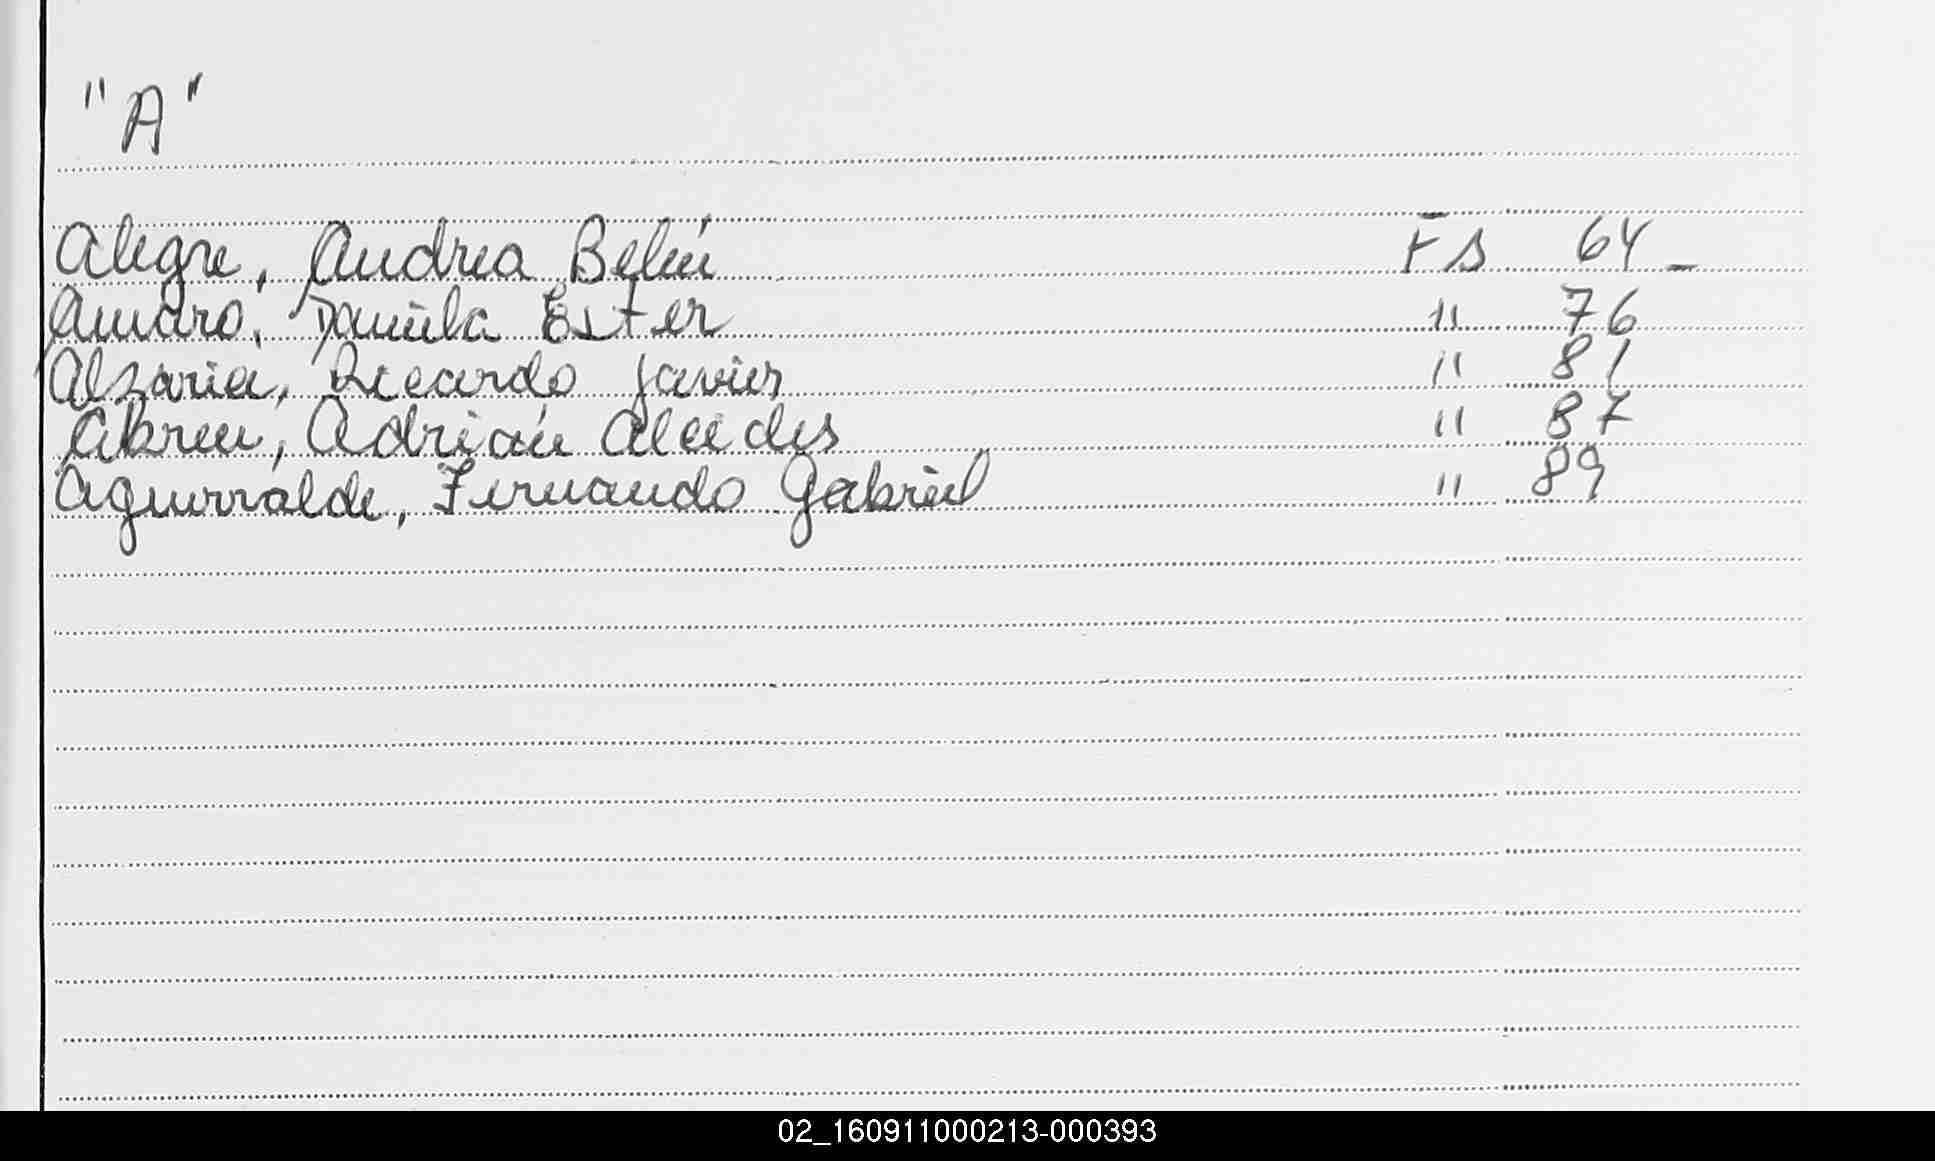 "A"
Alegre, Andrea Belén Fs 64_
Amaro, Daniela Ester " 76
Alzaria, Ricardo Javier " 81
Abreu, Adrián Alcides " 87
Aguirralde, Fernando Gabriel " 89
02_160911000213-000393